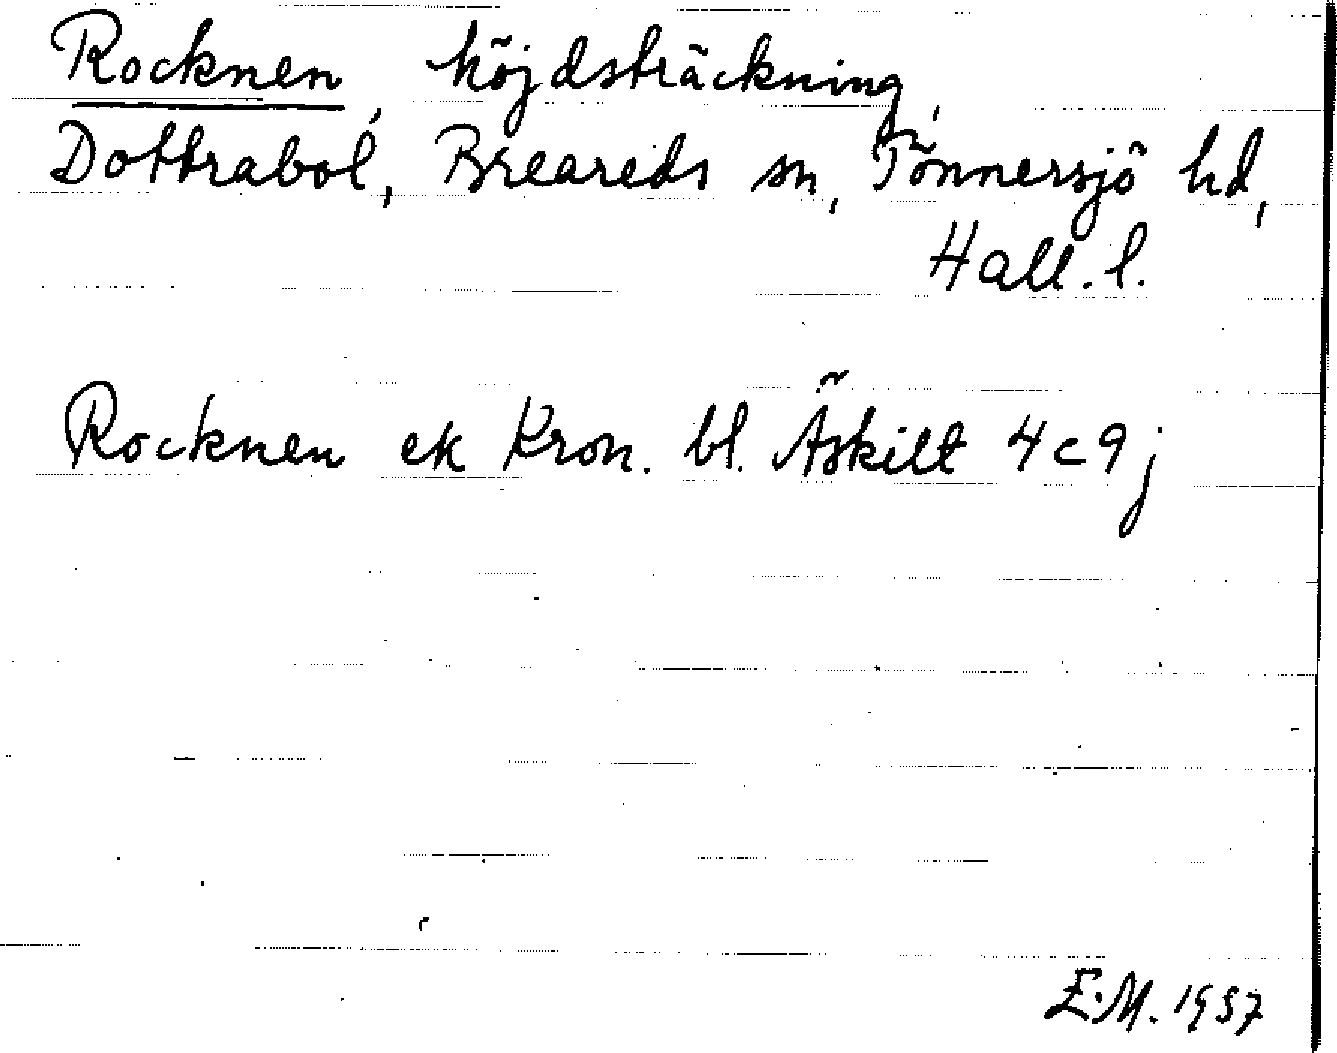 Rocknen, höjdsträckning,
Dottrabol, Breareds sn, Tönnersjö hd,
Hall. l.
Rocknen ek Kron. bl. Äskilt 4c9j
E.M. 1957